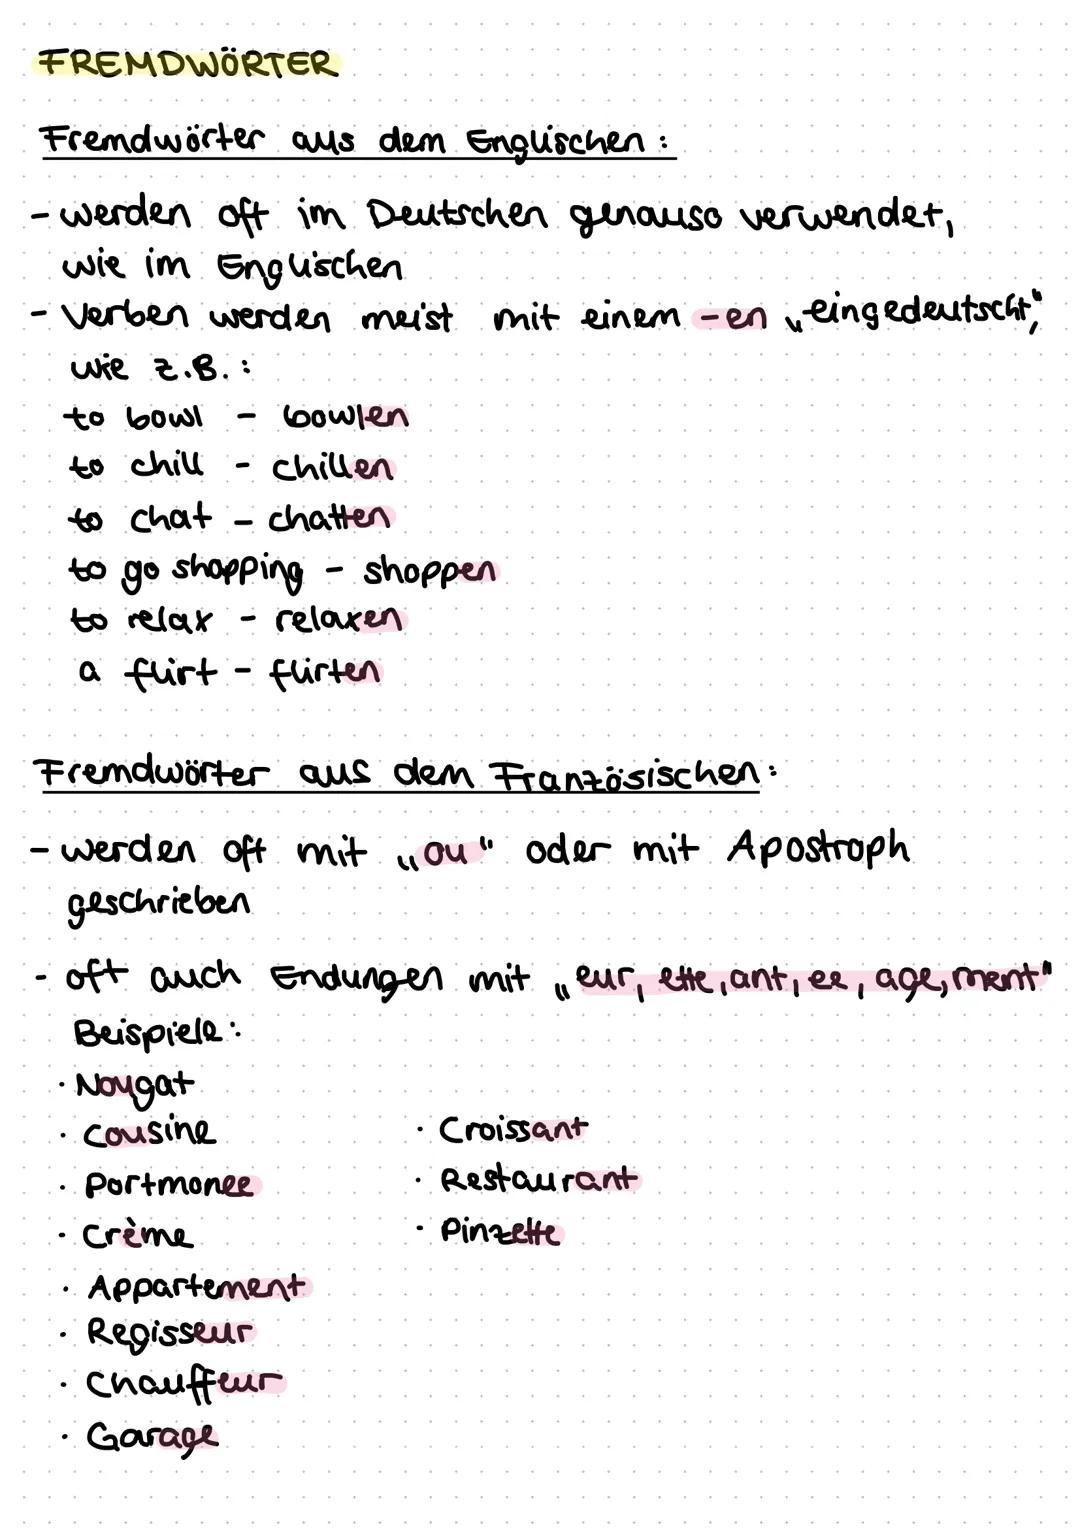 FREMDWÖRTER
Fremdwörter aus dem Englischen:
- werden oft im Deutschen genauso verwendet,
wie im Englischen
- Verben werden meist mit einem -en „eingedeutscht",
wie z.B.:
to bowl - bowlen
to chill - chillen
to chat - chatten
to go shopping - shoppen
to relax - relaxen
a flirt - flirten
Fremdwörter aus dem Französischen:
- werden oft mit „ou" oder mit Apostroph
geschrieben
- oft auch Endungen mit „eur, ette, ant, ee, age, ment"
Beispiele:
· Nougat
· Cousine
· Portmonee
· Crème
· Appartement
· Regisseur
· Chauffeur
· Garage
· Croissant
· Restaurant
· Pinzette